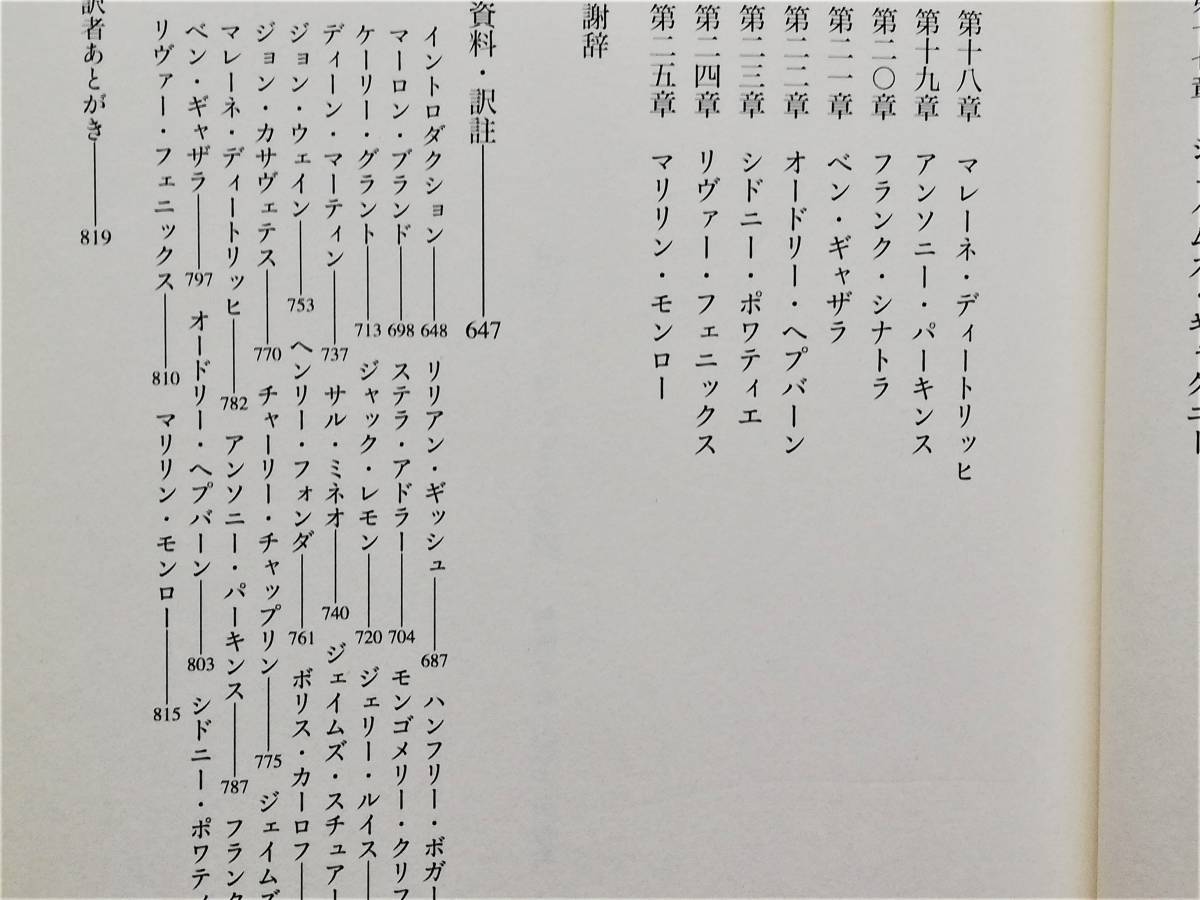 第十八章 マレーネ・ディートリッヒ
第十九章 アンソニー・パーキンス
第二〇章 フランク・シナトラ
第二一章 ベン・ギャザラ
第二二章 オードリー・ヘプバーン
第二三章 シドニー・ポワティエ
第二四章 リヴァー・フェニックス
第二五章 マリリン・モンロー
謝辞
資料・訳註――647
イントロダクション――648 リリアン・ギッシュ――687 ハンフリー・ボガー
マーロン・ブランド――698 ステラ・アドラー――704 モンゴメリー・クリフ
ケーリー・グラント――713 ジャック・レモン――720 ジェリー・ルイス――
ディーン・マーティン――737 サル・ミネオ――740 ジェイムズ・スチュアー
ジョン・ウェイン――753 ヘンリー・フォンダ――761 ボリス・カーロフ――
ジョン・カサヴェテス――770 チャーリー・チャップリン――775 ジェイムズ
マレーネ・ディートリッヒ――782 アンソニー・パーキンス――787 フランク
ベン・ギャザラ――797 オードリー・ヘプバーン――803 シドニー・ポワティ
リヴァー・フェニックス――810 マリリン・モンロー――815
訳者あとがき――819